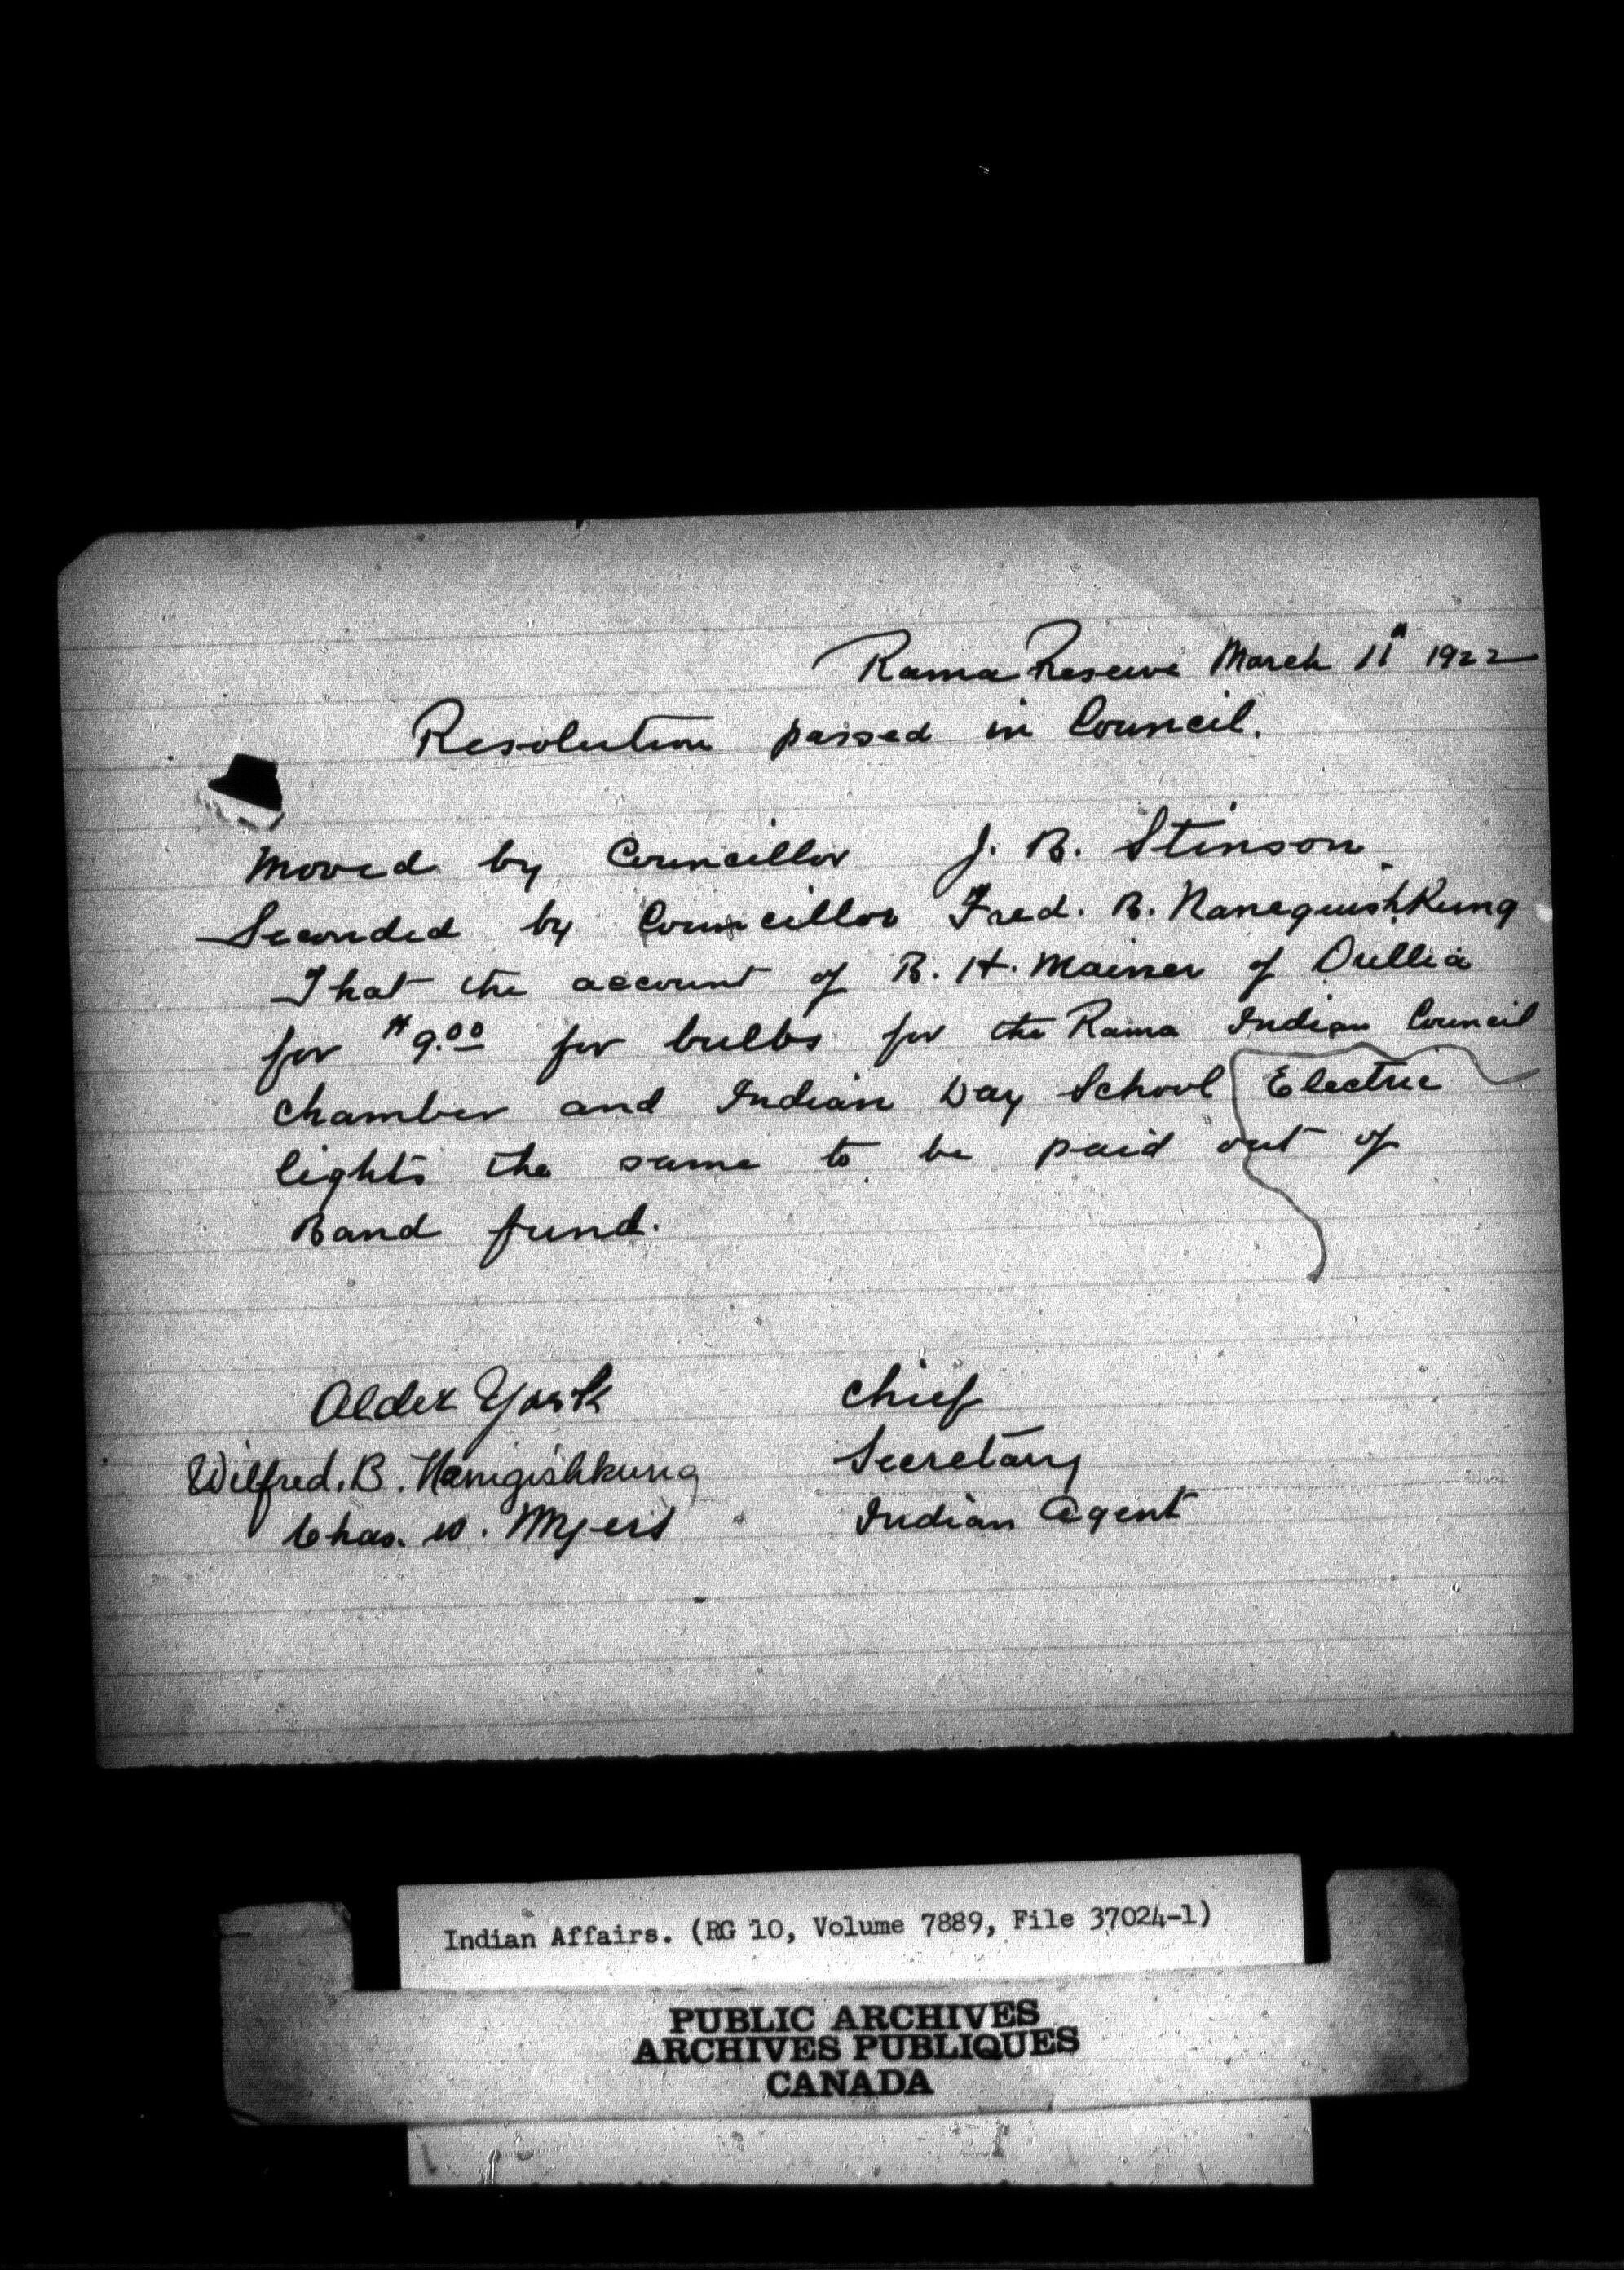 Rama Reserve March 11" 1922
Resolution passed in Council.
Moved by Councillor J. B. Stinson.
Seconded by Councillor Fred. B. Naneguishkung
That the account of B. H. Mainer of Orillia
for $9.00 for bulbs for the Rama Indian Council
Chamber and Indian Day School Electric
lights the same to be paid out of
Band fund.
Alder York Chief
Wilfred. B. Nanigishkung Secretary
Chas. W. Myers Indian Agent
Indian Affairs. (RG 10, Volume 7889, File 37024-1)
PUBLIC ARCHIVES
ARCHIVES PUBLIQUES
CANADA